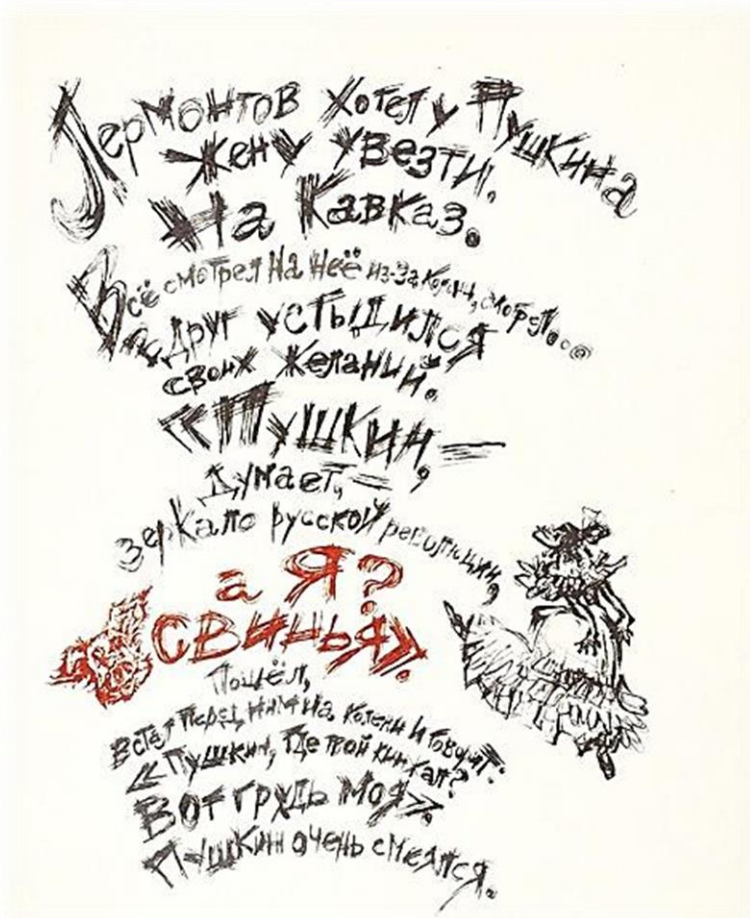 Лермонтов хотел у Пушкина
жену увезти.
На Кавказ.
Всё смотрел на неё из-за колонн, смотрел...
Вдруг устыдился
своих желаний.
«Пушкин, —
думает, —
зеркало русской революции,
а я?
свинья».
Пошёл,
встал перед ним на колени и говорит:
«Пушкин, где твой кинжал?
Вот грудь моя».
Пушкин очень смеялся.